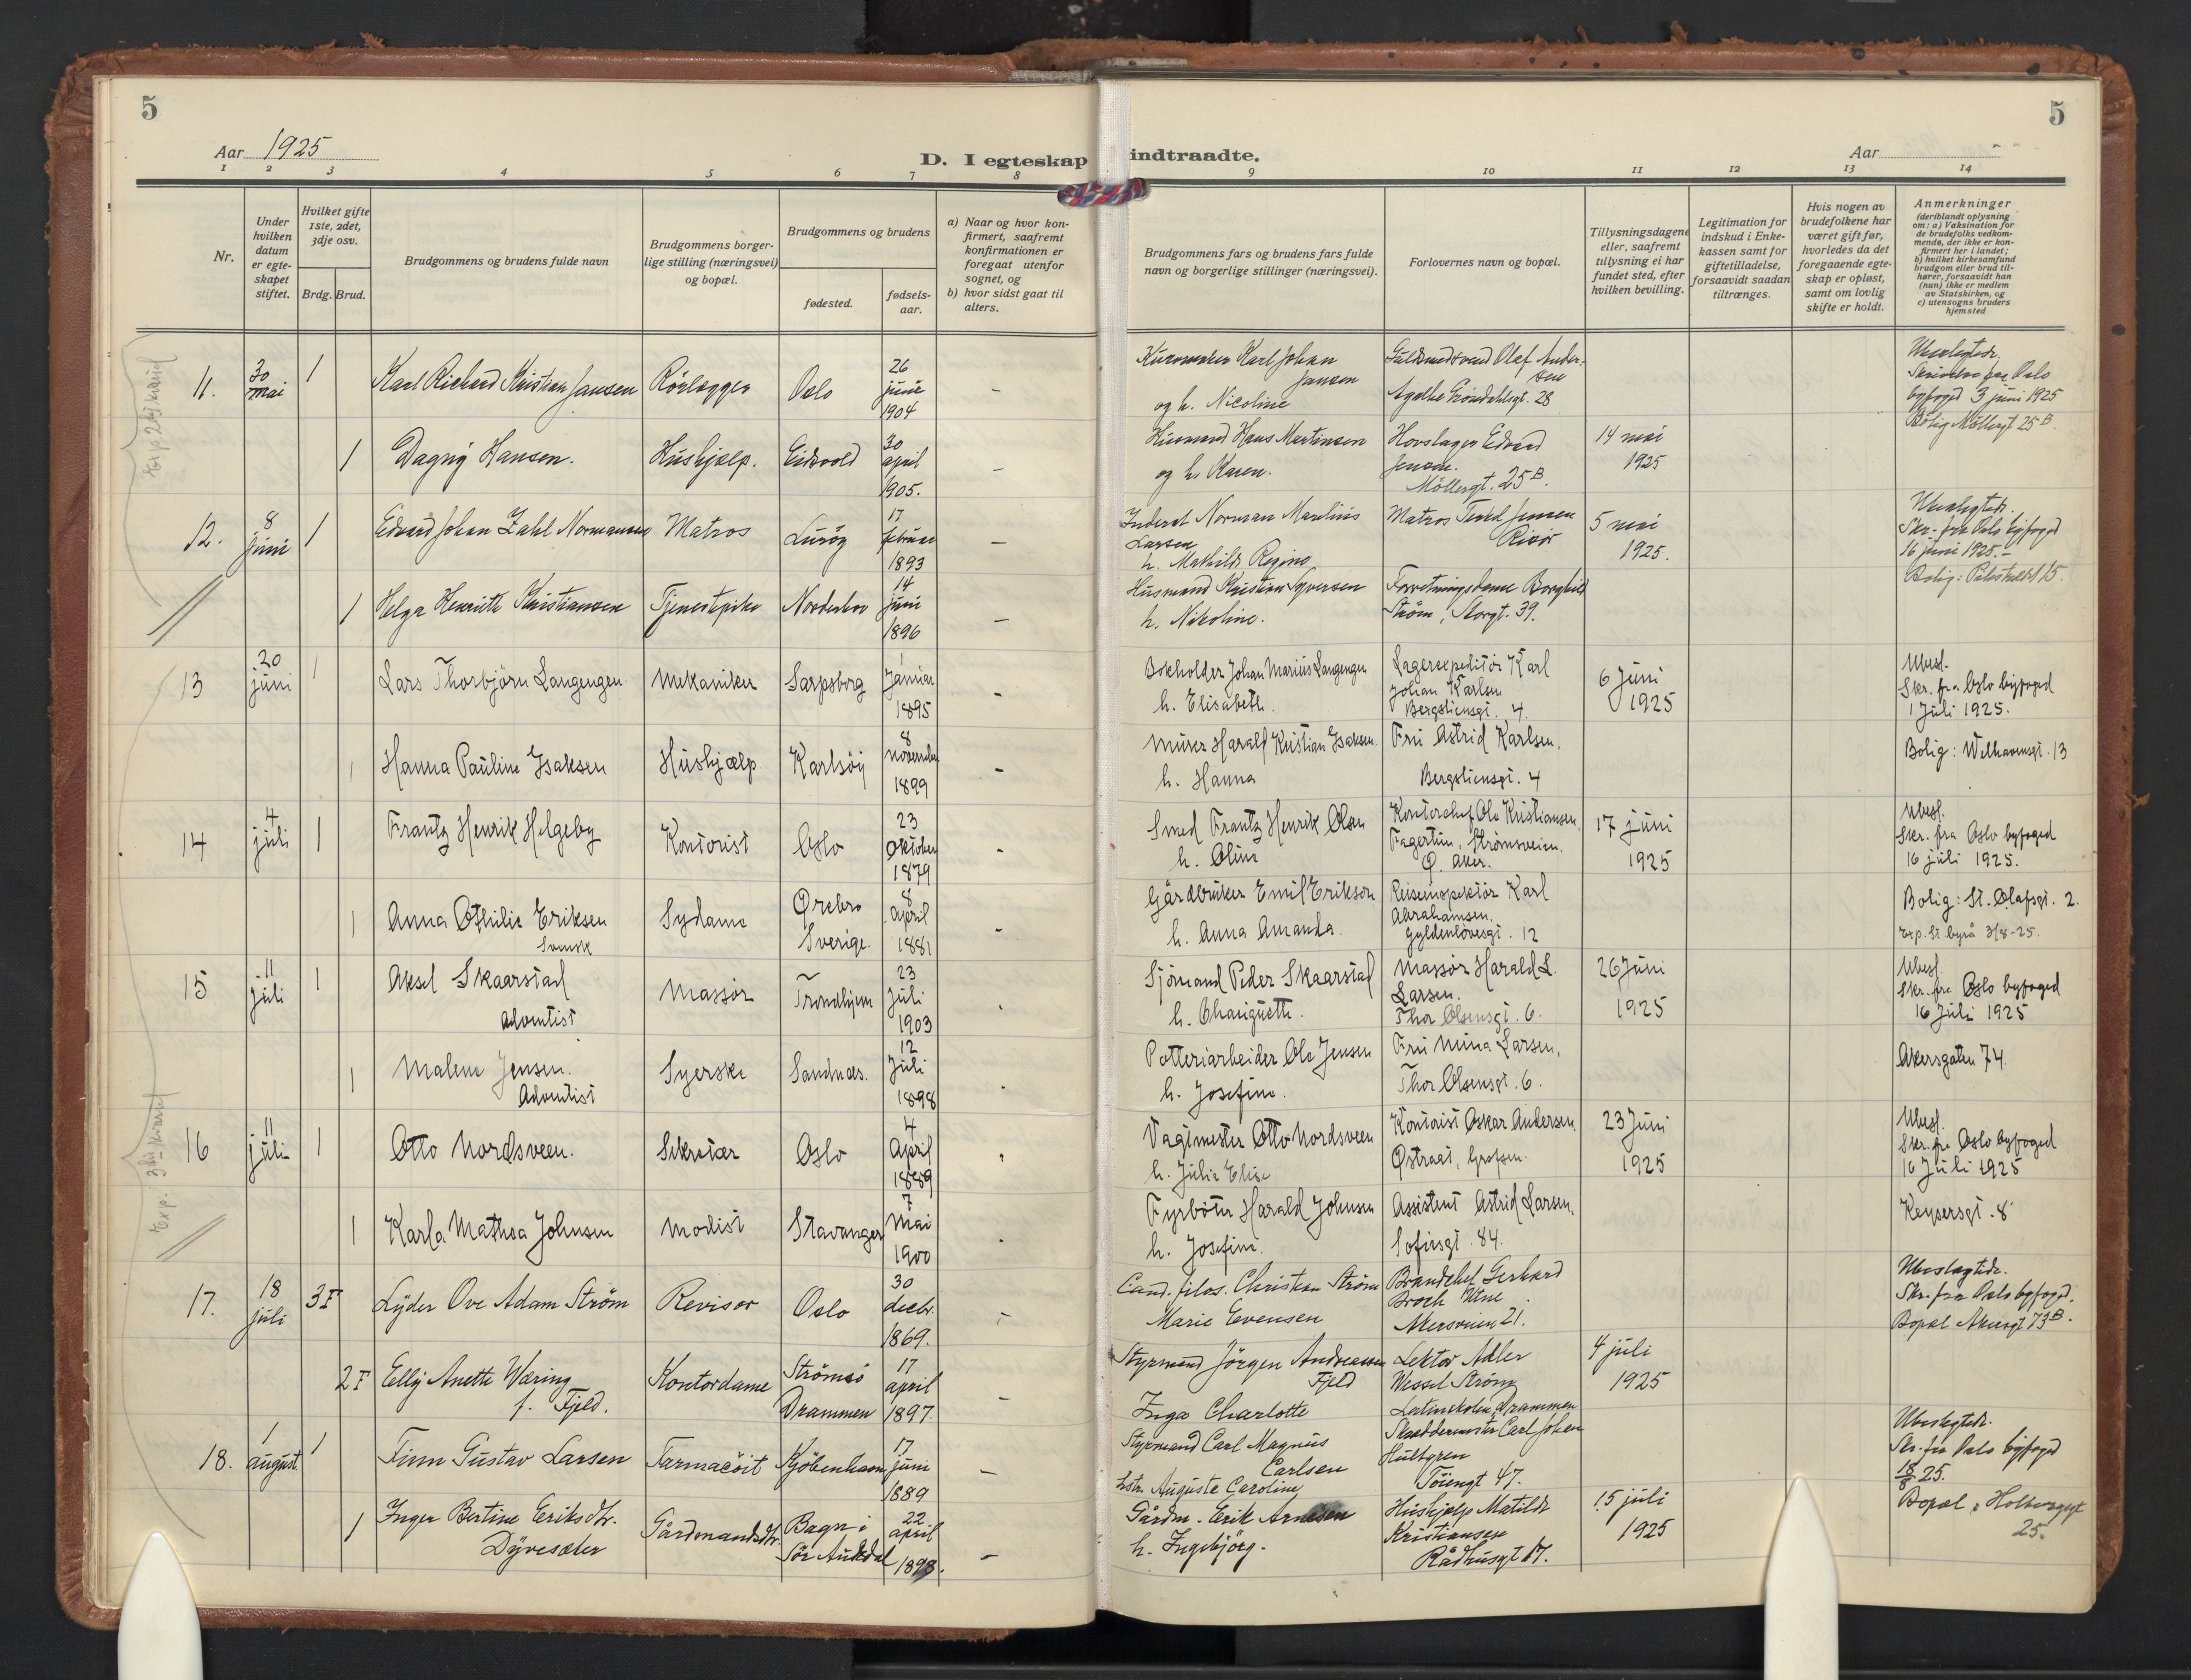 5
5
Aar 1925
D. I egteskap indtraadte.
Aar
1 2 3 4 5 6 7 8 9 10 11 12 13 14
Nr.
Under hvilken datum er egteskapet stiftet.
Hvilket gifte 1ste, 2det, 3dje osv.
Brdg. Brud.
Brudgommens og brudens fulde navn
Brudgommens borgerlige stilling (næringsvei) og bopæl.
Brudgommens og brudens
fødested.
fødselsaar.
a) Naar og hvor konfirmert, saafremt konfirmationen er foregaat utenfor sognet, og
b) hvor sidst gaat til alters.
Brudgommens fars og brudens fars fulde navn og borgerlige stillinger (næringsvei).
Forlovernes navn og bopæl.
Tillysningsdagene eller, saafremt tillysning ei har fundet sted, efter hvilken bevilling.
Legitimation for indskud i Enkekassen samt for giftetilladelse, forsaavidt saadan tiltrænges.
Hvis nogen av brudefolkene har været gift før, hvorledes da det foregaaende egteskap er opløst, samt om lovlig skifte er holdt.
Anmerkninger (deriblandt oplysning om: a) Vaksination for de brudefolks vedkommende, der ikke er konfirmert her i landet; b) hvilket kirkesamfund brudgom eller brud tilhører, forsaavidt han (hun) ikke er medlem av Statskirken, og c) utensogns bruders hjemsted
11. 30 mai 1 Karl Richard Kristian Jansen Rörlægger Oslo 26 juni 1904 –
Karl Johan Jansen og h. Nicoline
Olaf Andersen Agathe Gröndahlsgt. 28
Ubeslegtede. Oslo byfoged 3 juni 1925 Bolig Möllergt 25 B.
1 Dagny Hansen. Hushjælp. Eidsvold 30 april 1905. –
Husmand Hans Martinsen og h. Karen.
Hovslager Edvard Jensen. Möllergt. 25 B.
14 mai 1925
12. 8 juni 1 Edvard Johan Zahl Normansen Matros Luröy 17 februar 1893 –
Inderst Norman Marelius Larsen h. Mathilde Regine
Matros Jensen
5 mai 1925.
Ubeslegtede. Skr. fra Oslo byfoged 16 juni 1925. – Bolig: 15.
1 Helga Henriette Kristiansen Tjenestepike Norderhov 14 juni 1896 –
Husmand Kristian Syversen h. Nikoline.
Forretningsdame Borghild Ström, Storgt. 39.
13 20 juni 1 Lars Thorbjörn Langengen Mekaniker Sarpsborg 1 Januar 1895 –
Bokholder Johan Marius Langengen h. Elisabeth.
Lagerexpeditör Karl Johan Karlsen Bergsliensgt. 4
6 Juni 1925
Ubesl. Skr. fra Oslo byfoged 1 Juli 1925.
1 Hanna Pauline Isaksen Hushjælp Karlsöy 8 november 1899 –
Murer Haralf Kristian Isaksen. h. Hanna
Fru Astrid Karlsen, Bergsliensgt. 4
Bolig: Welhavensgt. 13
14 4 juli 1 Frantz Henrik Helgeby Kontorist Oslo 23 Oktober 1879 –
Smed Frantz Henrik Olsen h. Oline
Kontorchef Ole Kristiansen, Fagertun, Strömsveien, Ø. Aker.
17 juni 1925
Ubesl. Skr. fra Oslo byfoged 16 juli 1925.
1 Anna Othilie Eriksen Svensk Sydame Ørebro Sverige. 8 April 1881 –
Gårdbruker Emil Erikson h. Anna Amanda.
Reiseinspektör Karl Abrahamsen, Gyldenlövesgt. 12
Bolig: St. Olafsgt. 2.
Exp. St. byrå 3/8-25.
15 11 juli 1 Aksel Skaarstad Adventist Massör Trondhjem 23 Juli 1903
Sjömand Peder Skaarstad h.
Massör Harald L. Larsen. Thor Olsensgt. 6.
26 Juni 1925
Ubesl. Skr. fra Oslo byfoged 16 Juli 1925
1 Malene Jensen. Adventist Syerske Sandnæs. 12 Juli 1898
Potteriarbeider Ole Jensen h. Josefine.
Fru Mina Larsen, Thor Olsensgt. 6.
Akersgaten 74.
16 11 juli 1 Otto Nordsveen. Sekretær Oslo 4 April 1889
Vagtmester Otto Nordsveen h. Julie Elise
Kontorist Oskar Andersen, Østraat, Grefsen.
23 Juni 1925
Ubesl. Skr. fra Oslo byfoged 16 Juli 1925
1 Karla Mathea Johnsen Modist Stavanger 7 Mai 1900
Fyrböter Harald Johnsen h. Josefine.
Assistent Astrid Larsen, Sofiesgt. 84.
Keysersgt. 8
17. 18 juli 3 F Lyder Ove Adam Ström Revisor Oslo 30 decbr. 1869. –
Cand. filos. Christian Ström Marie Evensen
Brandchef Gerhard Broch Utne Akersveien 21.
Ubeslegtede. Skr. fra Oslo byfoged. Bopæl Akersgt 73 B.
2 F Elly Anette Wæring f. Fjeld. Kontordame Strömsö Drammen 17 april 1897. –
Styrmand Jörgen Andreassen Fjeld Inga Charlotte
Lektor Adler Wessel Ström Latinskolen, Drammen
4 juli 1925
18. 1 august 1 Finn Gustav Larsen Farmacöit Kjöbenhavn 17 juni 1889 –
Styrmand Carl Magnus Carlsen Auguste Caroline
Skræddermester Carl Johan Hultgren Töiengt 47.
Ubeslegtede. Skr. fra Oslo byfoged 18/8 25.
1 Inger Bertine Eriksdtr. Dyvesæter Gårdmandsdtr. Bagn i Sör Aurdal 22 april 1898. –
Gårdm. Erik Arnesen h. Ingebjörg.
Hushjælp Matilde Kristiansen Rådhusgt 17.
15 juli 1925
Bopæl: Holbergsgt 25.
Exp. 2det kvartal
Exp. 3dje kvartal